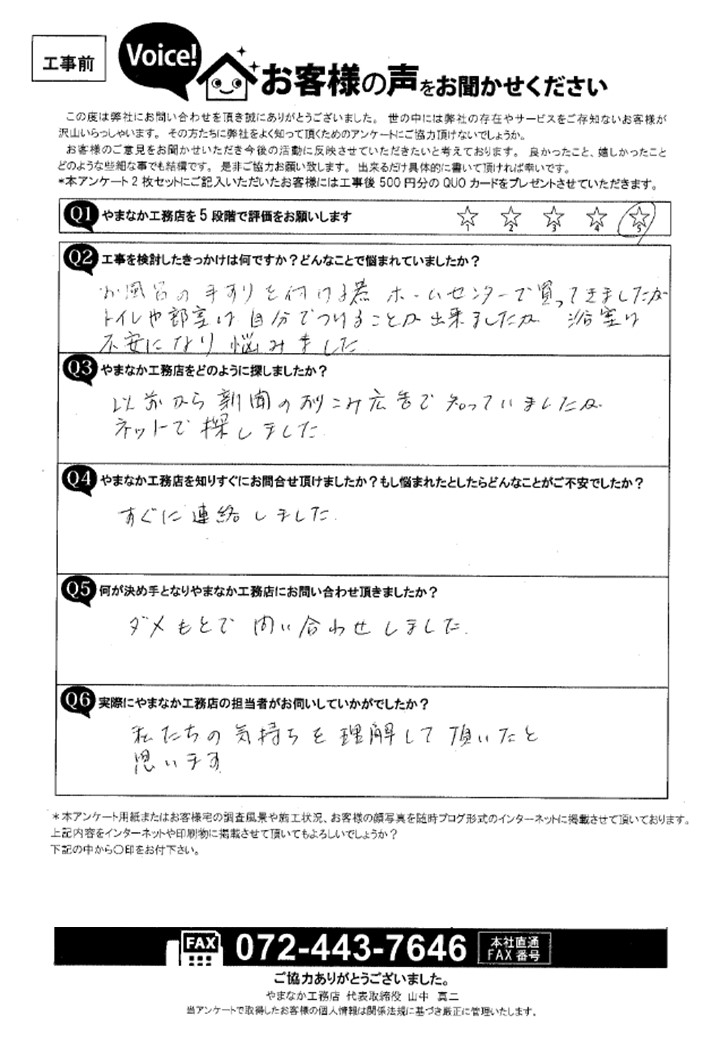 工事前
Voice!
お客様の声をお聞かせください
この度は弊社にお問い合わせを頂き誠にありがとうございました。 世の中には弊社の存在やサービスをご存知ないお客様が
沢山いらっしゃいます。 その方たちに弊社をよく知って頂くためのアンケートにご協力頂けないでしょうか。
お客様のご意見をお聞かせいただき今後の活動に反映させていただきたいと考えております。 良かったこと、嬉しかったこと
どのような些細な事でも結構です。 是非ご協力お願い致します。 出来るだけ具体的に書いて頂ければ幸いです。
*本アンケート2枚セットにご記入いただいたお客様には工事後500円分のQUOカードをプレゼントさせていただきます。
Q1 やまなか工務店を5段階で評価をお願いします
1 2 3 4 5
Q2 工事を検討したきっかけは何ですか?どんなことで悩まれていましたか?
お風呂の手すりを付ける為 ホームセンターで買ってきましたが
トイレや部屋は自分でつけることが出来ましたが 浴室は
不安になり悩みました
Q3 やまなか工務店をどのように探しましたか?
以前から新聞の折りこみ広告で知っていましたが
ネットで探しました
Q4 やまなか工務店を知りすぐにお問合せ頂けましたか?もし悩まれたとしたらどんなことがご不安でしたか?
すぐに連絡しました.
Q5 何が決め手となりやまなか工務店にお問い合わせ頂きましたか?
ダメもとで問い合わせしました.
Q6 実際にやまなか工務店の担当者がお伺いしていかがでしたか?
私たちの気持ちを理解して頂いたと
思います
*本アンケート用紙またはお客様宅の調査風景や施工状況、お客様の顔写真を随時ブログ形式のインターネットに掲載させて頂いております。
上記内容をインターネットや印刷物に掲載させて頂いてもよろしいでしょうか?
下記の中から〇印をお付下さい。
FAX 072-443-7646 本社直通
FAX番号
ご協力ありがとうございました。
やまなか工務店 代表取締役 山中 真二
当アンケートで取得したお客様の個人情報は関係法規に基づき厳正に管理いたします。